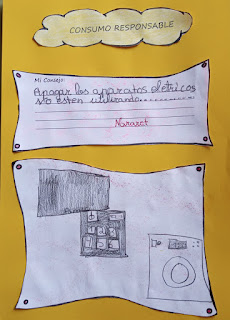 CONSUMO RESPONSABLE
Mi Consejo:
Apagar los aparatos eletricos
No esten utilizando............
Nazaret